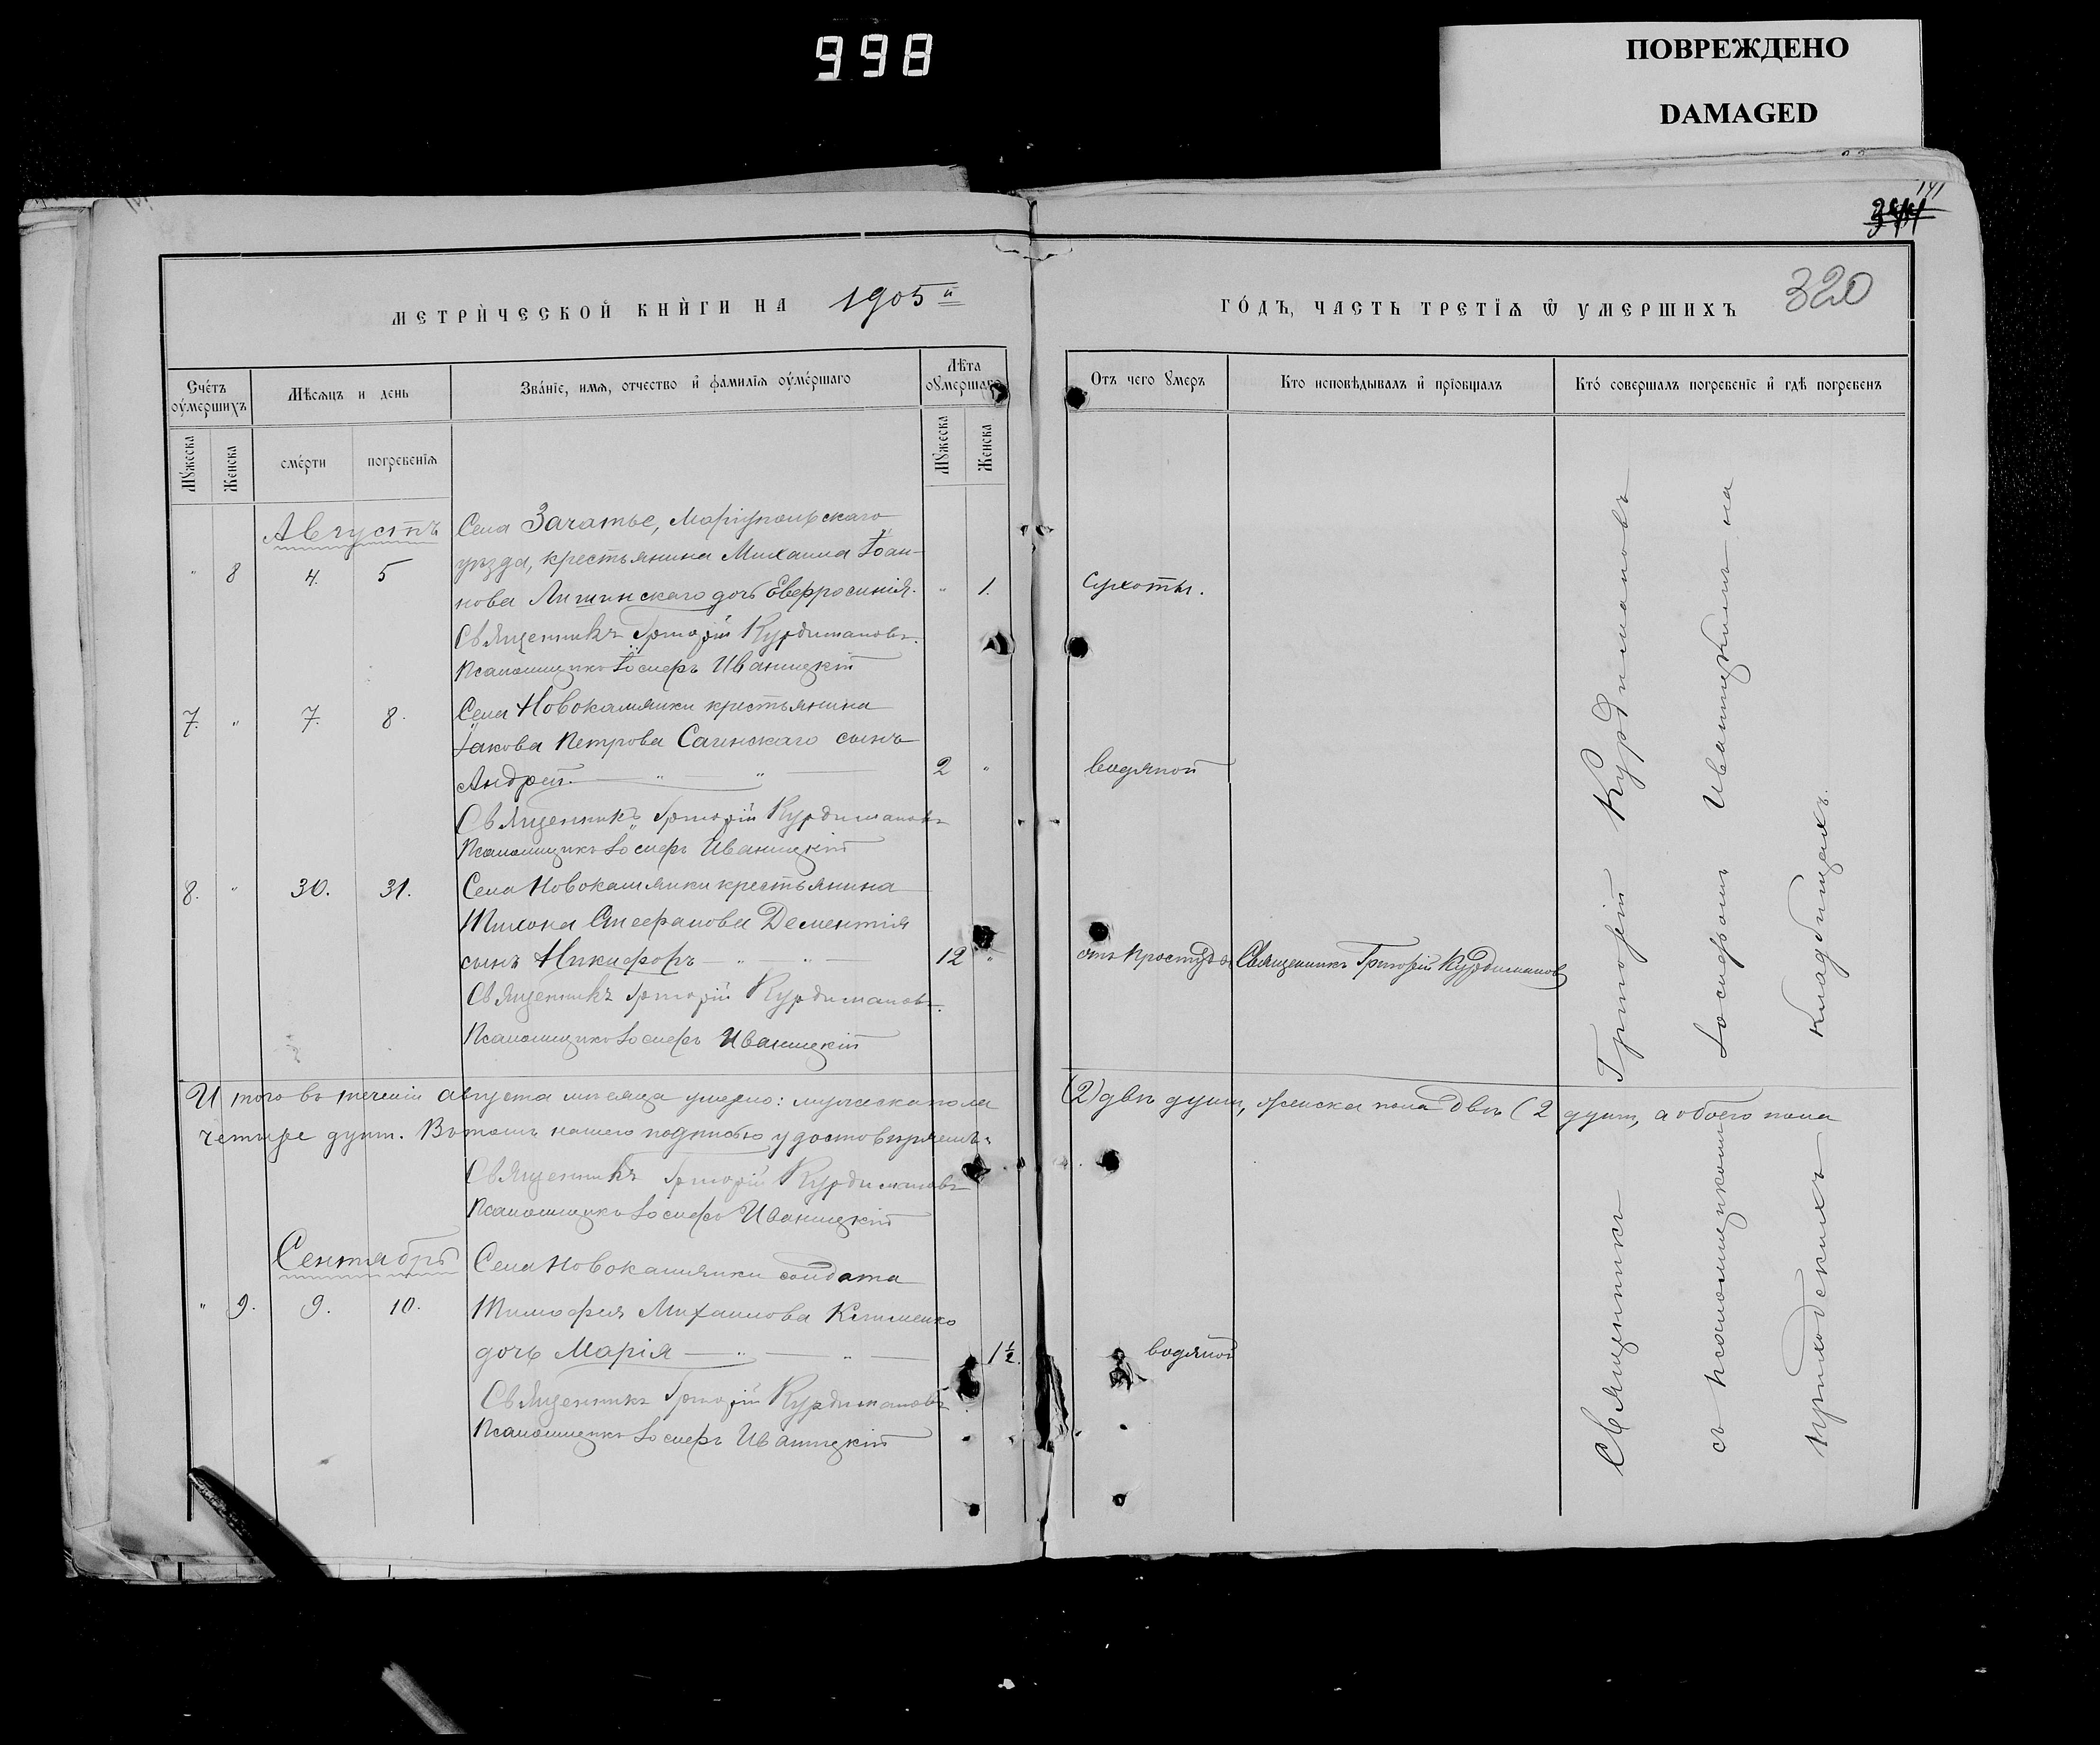 998
ПОВРЕЖДЕНО
DAMAGED
141
320
МЕТРИЧЕСКОЙ КНИГИ НА 1905й
ГОДЪ, ЧАСТЬ ТРЕТІѦ Ѿ УМЕРШИХЪ
Счетъ оумершихъ
Мѣсяцъ и день
Званіе, имѧ, отчество и фамиліѧ оумершаго
Лѣта оумершаго
Отъ чего умеръ
Кто исповѣдывалъ и пріобщалъ
Кто совершалъ погребеніе и гдѣ погребенъ
Мужеска
Женска
смерти
погребеніѧ
Мужеска
Женска
Августъ
Села Зачатье, Маріупольскаго
уѣзда, крестьянина Михаила Іоан-
" 8 4. 5
нова Лишинскаго дочь Евфросинія. " 1. Сухоты.
Священникъ Григорій Курдимановъ.
Псаломщикъ Іосифъ Иваницкій
7. " 7. 8.
Села Новокашянки крестьянина
Іакова Петрова Сагинскаго сынъ
Андрей. " " 2 " водяной
Священникъ Григорій Курдимановъ
Псаломщикъ Іосифъ Иваницкій
8. " 30. 31.
Села Новокашянки крестьянина
Тихона Стефанова Дементія
сынъ Никифоръ " " 12 " отъ простуды Священникъ Григорій Курдимановъ
Священникъ Григорій Курдимановъ.
Псаломщикъ Іосифъ Иваницкій
Итого въ теченіи августа мѣсяца умерло: мужеска пола (2) двѣ души, женска пола двѣ (2 души, а обоего пола
четыре души. Въ томъ нашею подписью удостовѣряемъ:
Священникъ Григорій Курдимановъ
Псаломщикъ Іосифъ Иваницкій
Сентябрь
Села Новокашянки солдата
" 9. 9. 10.
Тимофея Михаилова Клименко
дочь Марія " " 1½. водяной
Священникъ Григорій Курдимановъ
Псаломщикъ Іосифъ Иваницкій
Священникъ Григорій Курдимановъ
съ псаломщикомъ Іосифомъ Иваницкимъ на
приходскихъ кладбищахъ.